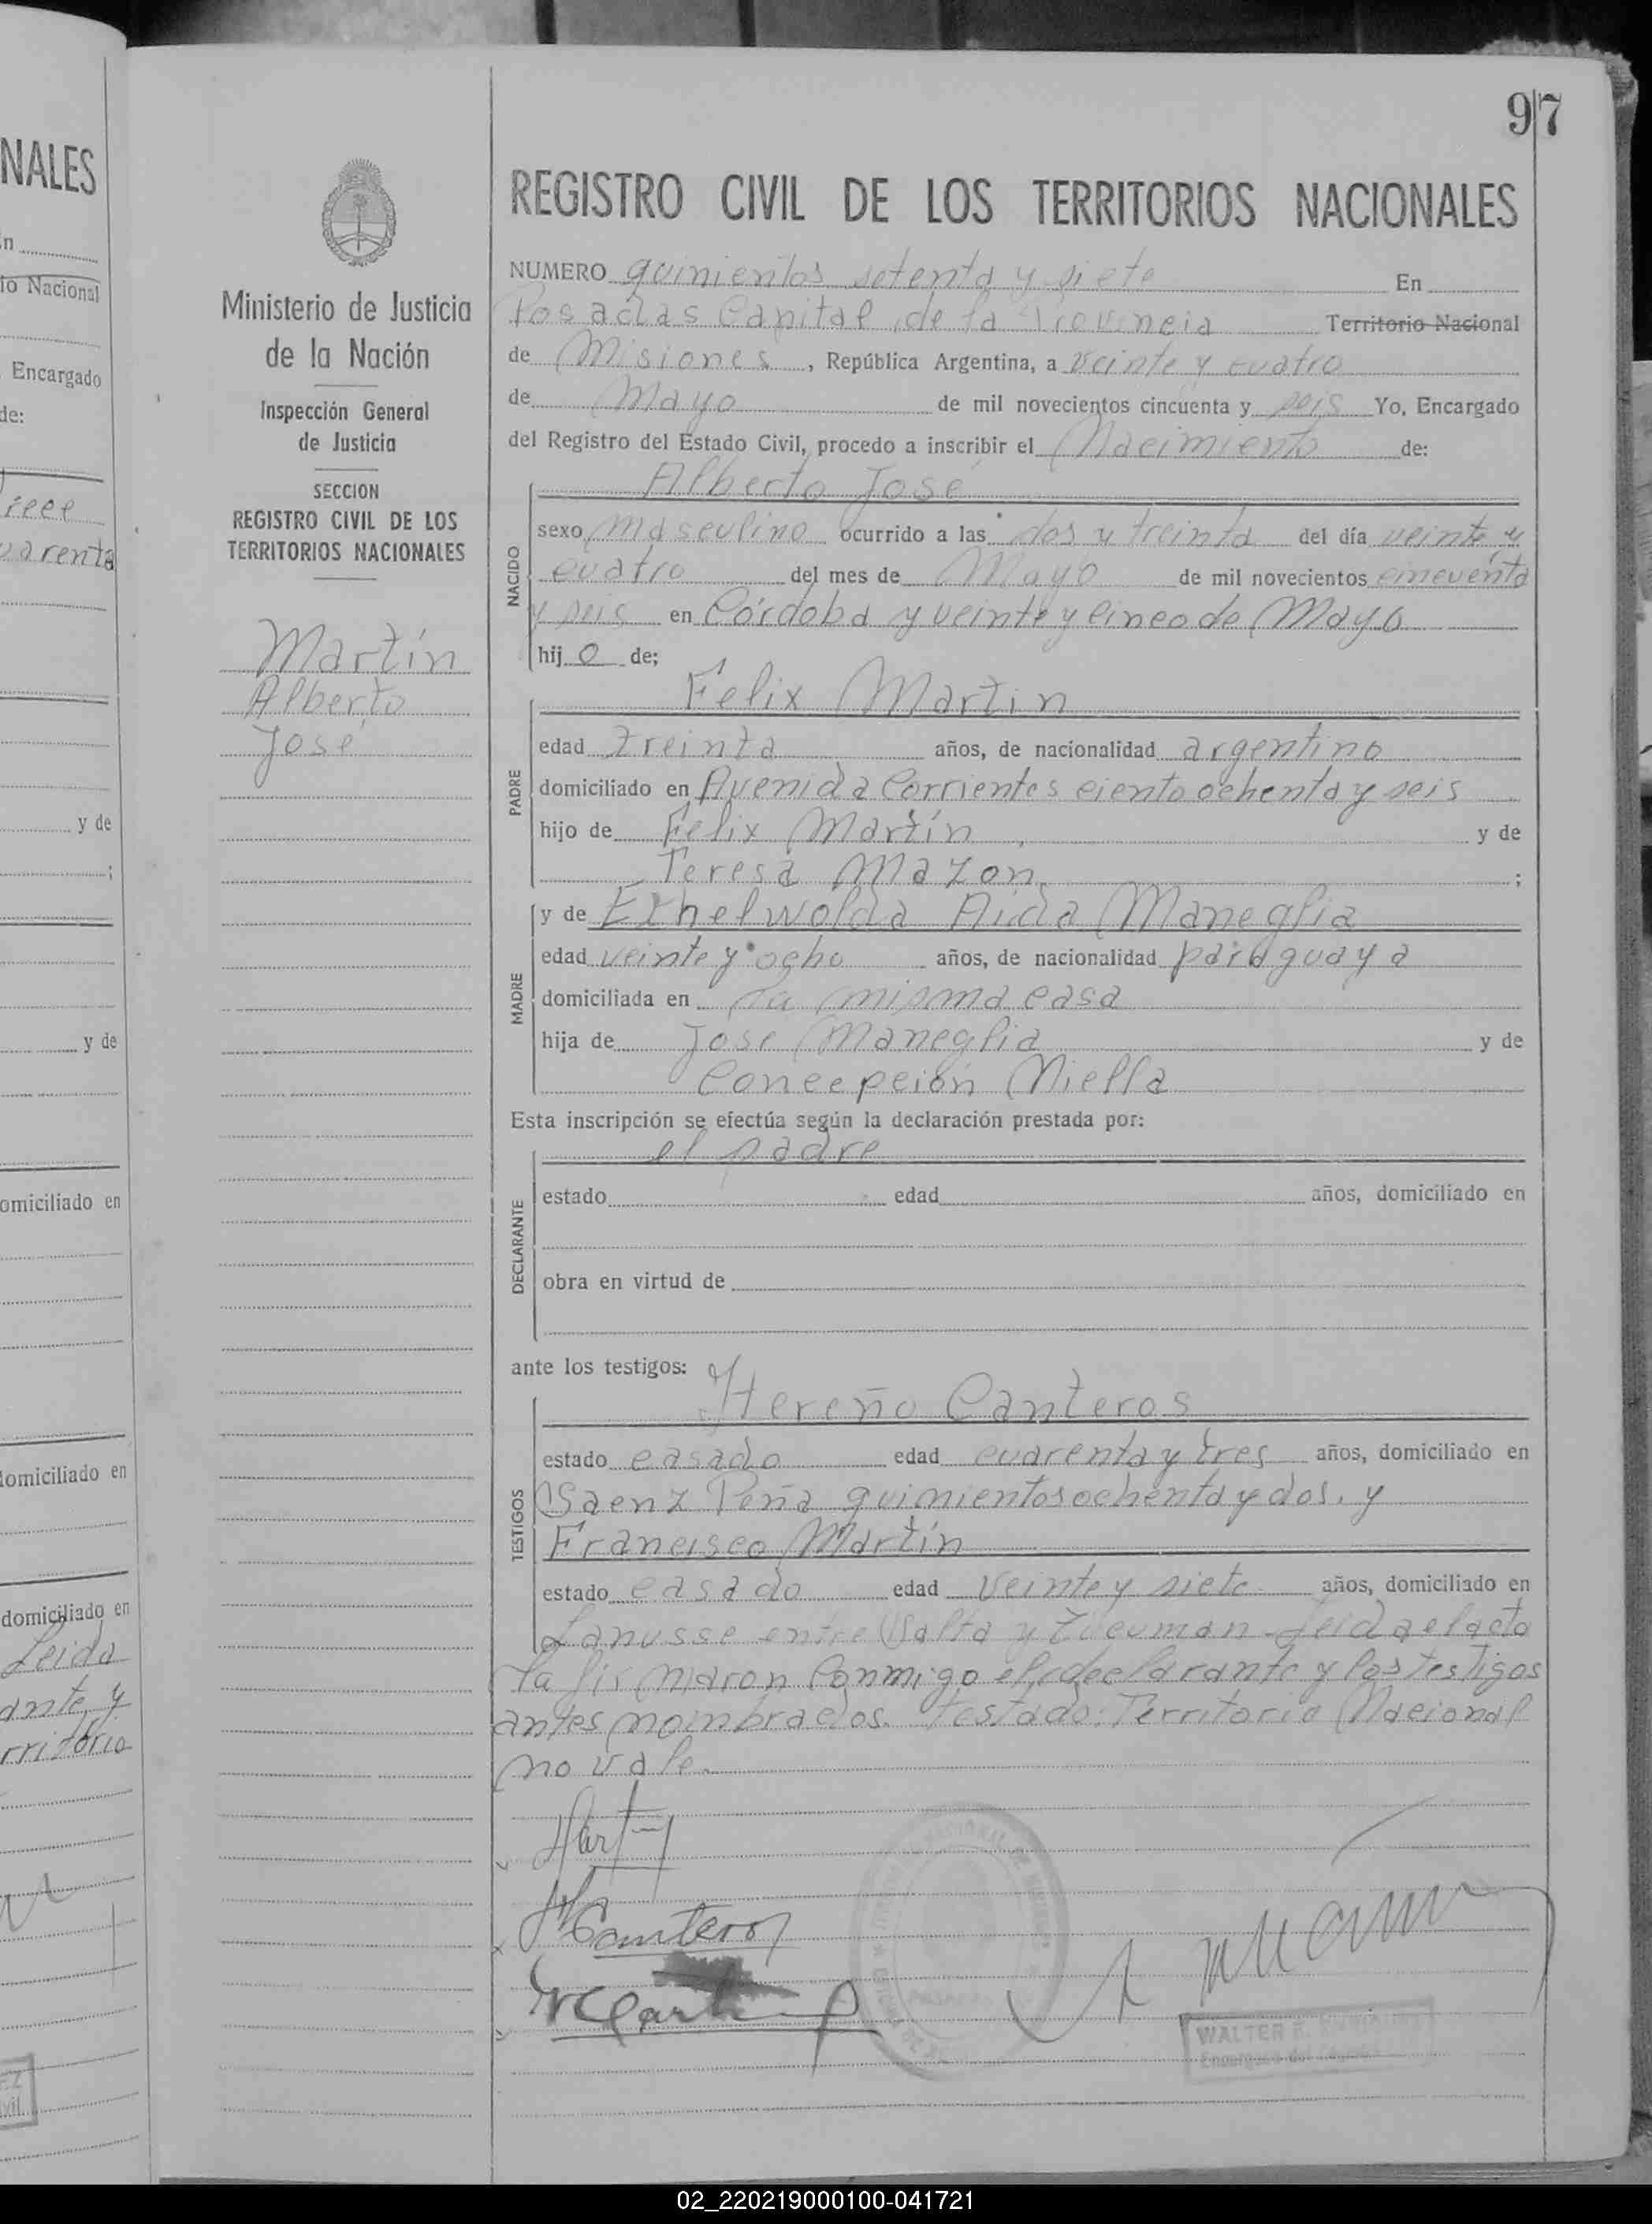 97
NALES
n
io Nacional
Encargado
de:
uarenta
y de
;
y de
omiciliado en
domiciliado en
domiciliado en
Leida
ante y
rritorio
Ministerio de Justicia
de la Nación
Inspección General
de Justicia
SECCION
REGISTRO CIVIL DE LOS
TERRITORIOS NACIONALES
Martín
Alberto
José
REGISTRO CIVIL DE LOS TERRITORIOS NACIONALES
NUMERO quinientos setenta y siete En
Posadas Capital de la Provincia Territorio Nacional
de Misiones, República Argentina, a veinte y cuatro
de Mayo de mil novecientos cincuenta y seis Yo, Encargado
del Registro del Estado Civil, procedo a inscribir el Nacimiento de:
Alberto José
NACIDO
sexo masculino ocurrido a las dos y treinta del día veinte y
cuatro del mes de Mayo de mil novecientos cincuenta
y seis en Córdoba y veinte y cinco de Mayo
hijo de;
Felix Martin
PADRE
edad treinta años, de nacionalidad argentino
domiciliado en Avenida Corrientes ciento ochenta y seis
hijo de Felix Martín y de
Teresa Mazon ;
MADRE
y de Ethelwolda Aida Maneglia
edad veinte y ocho años, de nacionalidad paraguaya
domiciliada en la misma casa
hija de José Maneglia y de
Concepción Niella
Esta inscripción se efectúa según la declaración prestada por:
el padre
DECLARANTE
estado edad años, domiciliado en
obra en virtud de
ante los testigos:
Hereño Canteros
TESTIGOS
estado casado edad cuarenta y tres años, domiciliado en
Saenz Peña quinientos ochenta y dos. y
Francisco Martín
estado casado edad veinte y siete años, domiciliado en
Lanusse entre Salta y Tucuman. Leida el acta
la firmaron conmigo el declarante y los testigos
antes nombrados. Testado: Territorio Nacional
no vale.
Canteros
WALTER
02_220219000100-041721